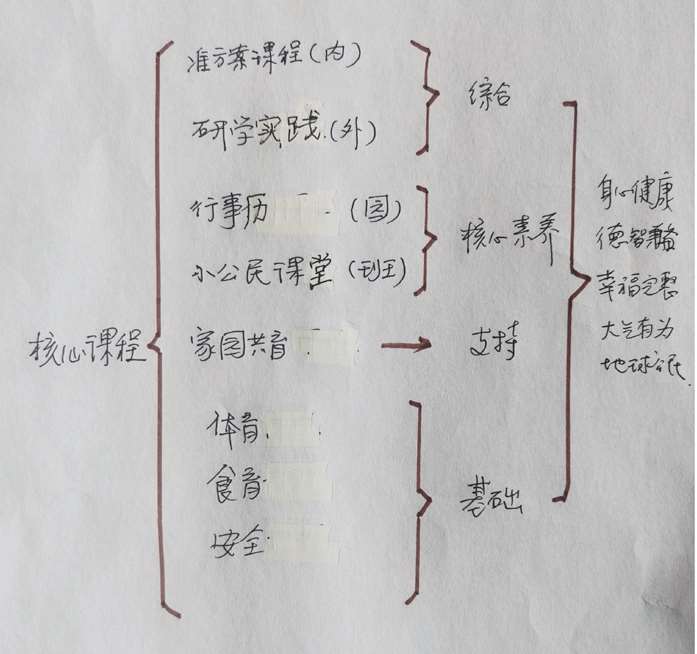 准方案课程(内)
综合
研学实践(外)
身心健康
行事历(园)
核心素养
德智兼备
小公民课堂(班)
幸福完整
核心课程
家园共育
支持
大气有为
地球公民
体育
食育
基础
安全